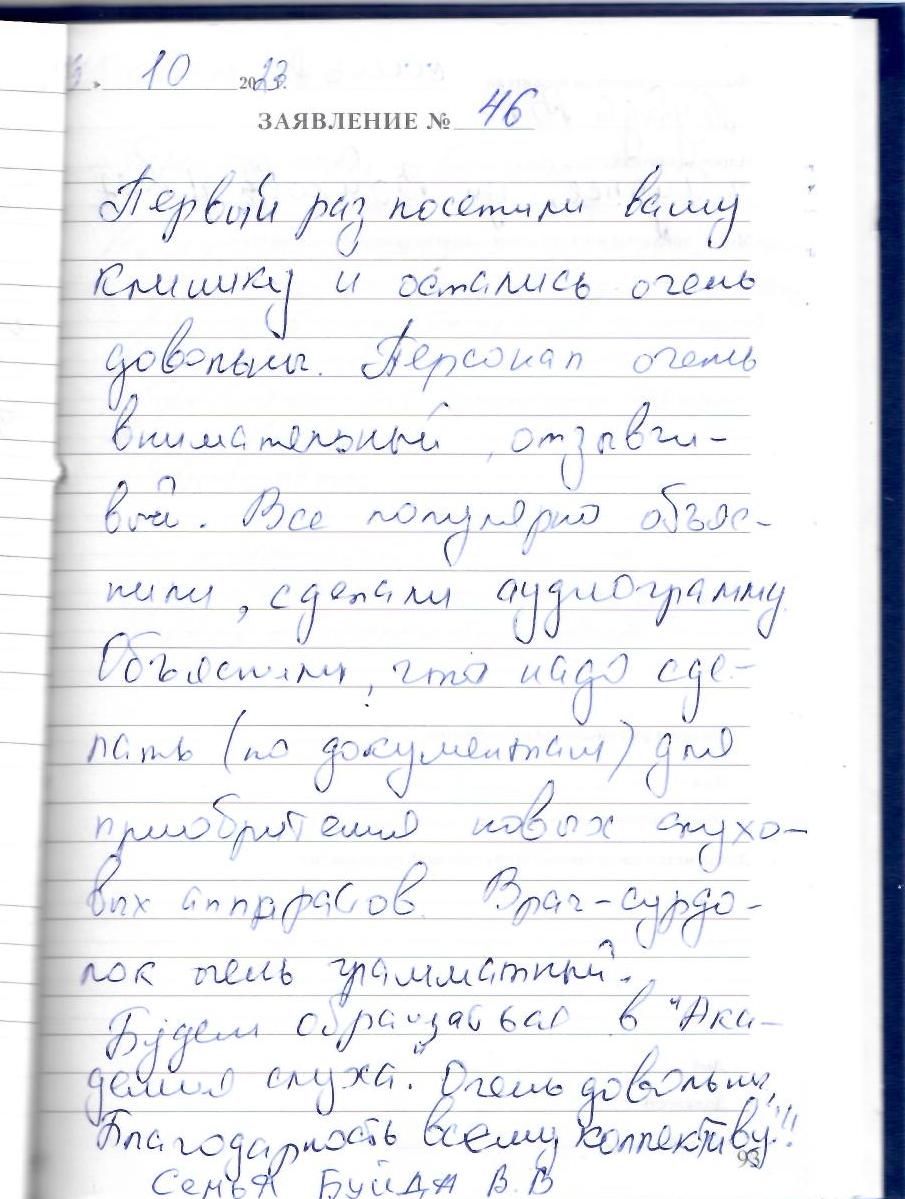 10 2023 г.
ЗАЯВЛЕНИЕ № 46
Первый раз посетили вашу
клинику и остались очень
довольны. Персонал очень
внимательный, отзывчи-
вый. Все популярно объяс-
нили, сделали аудиограмму
Объяснили, что надо сде-
лать (по документам) для
приобретения новых слухо-
вых аппаратов. Врач-сурдо-
лог очень грамматный.
Будем обращаться в "Ака-
демия слуха". Очень довольны,
Благодарность всему коллективу!!!
93
Семья Буйда В.В